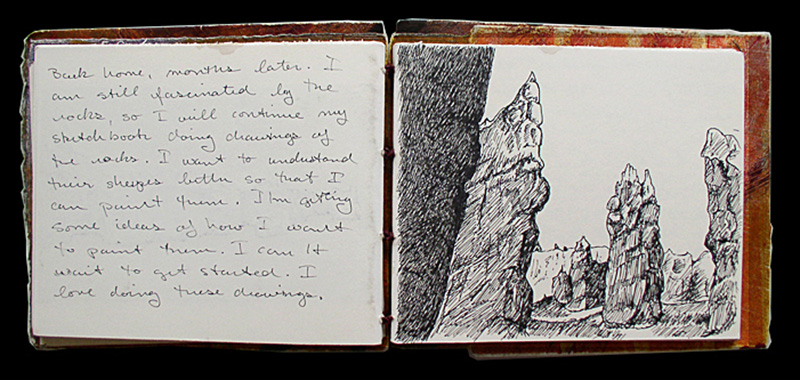 Back home, months later. I
am still fascinated by the
rocks, so I will continue my
sketchbook doing drawings of
the rocks. I want to understand
their shapes better so that I
can paint them. I'm getting
some ideas of how I want
to paint them. I can't
wait to get started. I
love doing these drawings.